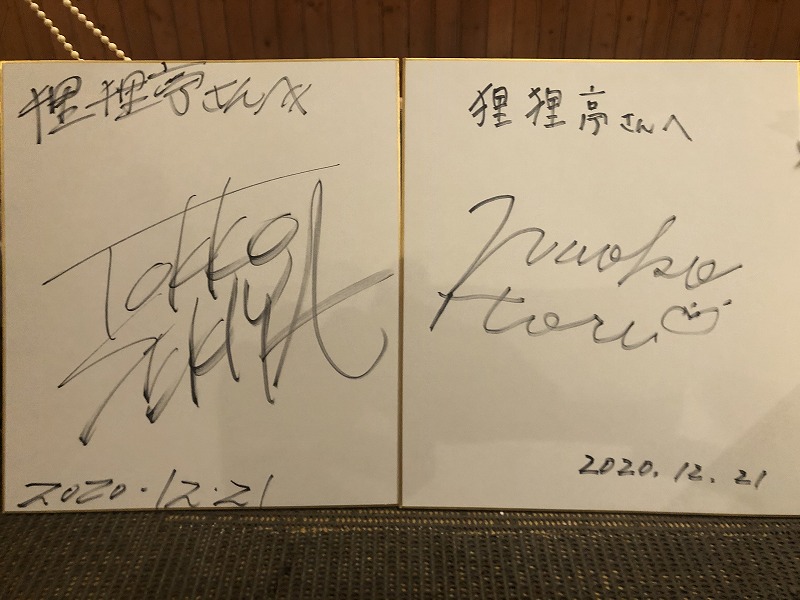 狸狸亭さんへ
Tokko
2020.12.21
狸狸亭さんへ
Naoko
2020.12.21